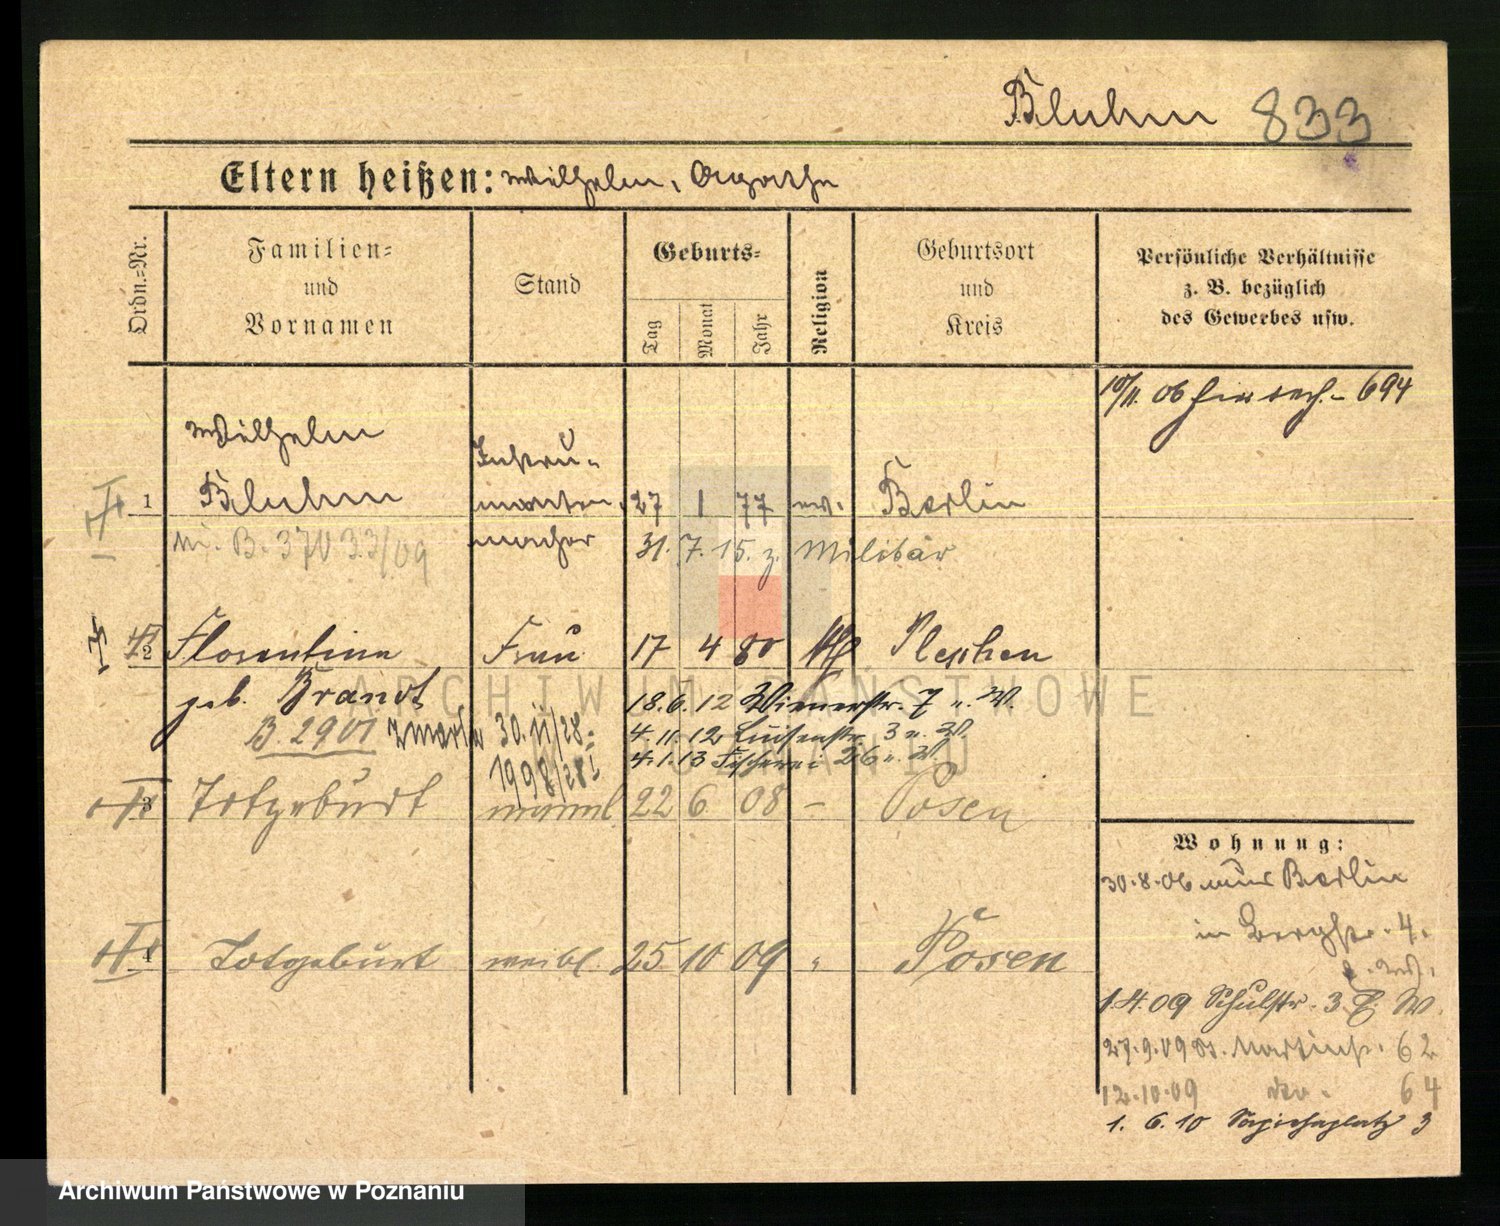 Bluhm 833
Eltern heißen: Wilhelm, Agathe
Ordn.=Nr.
Familien=
und
Vornamen
Stand
Geburts=
Tag
Monat
Jahr
Religion
Geburtsort
und
Kreis
Persönliche Verhältnisse
z. B. bezüglich
des Gewerbes usw.
10/11. 06 694
1
Wilhelm
Bluhm
Instru-
menten-
macher
27 1 77 ev. Berlin
31. 7. 15. z. Militär
2
Florentine Frau 17 4 80 kth Pleschen
geb. Brandt
18. 6. 12 Wienerstr. 7 u. W.
B. 2901 zmarła 30.11/28.
1998/28
4. 11. 12 Luisenstr. 3 u. W.
4. 1. 13 Fischerei 26 u. W.
3 Totgeburt männl. 22 6 08 – Posen
4 Totgeburt weibl. 25 10 09 " Posen
Wohnung:
30.8.06 aus Berlin
in Bergstr. 4.
1.4.09 Schulstr. 3 W.
27.9.09 St. Martinstr. 62
12.10.09 do. 64
1. 6. 10 Sapiehaplatz 3
ARCHIWUM PAŃSTWOWE
W POZNANIU
Archiwum Państwowe w Poznaniu